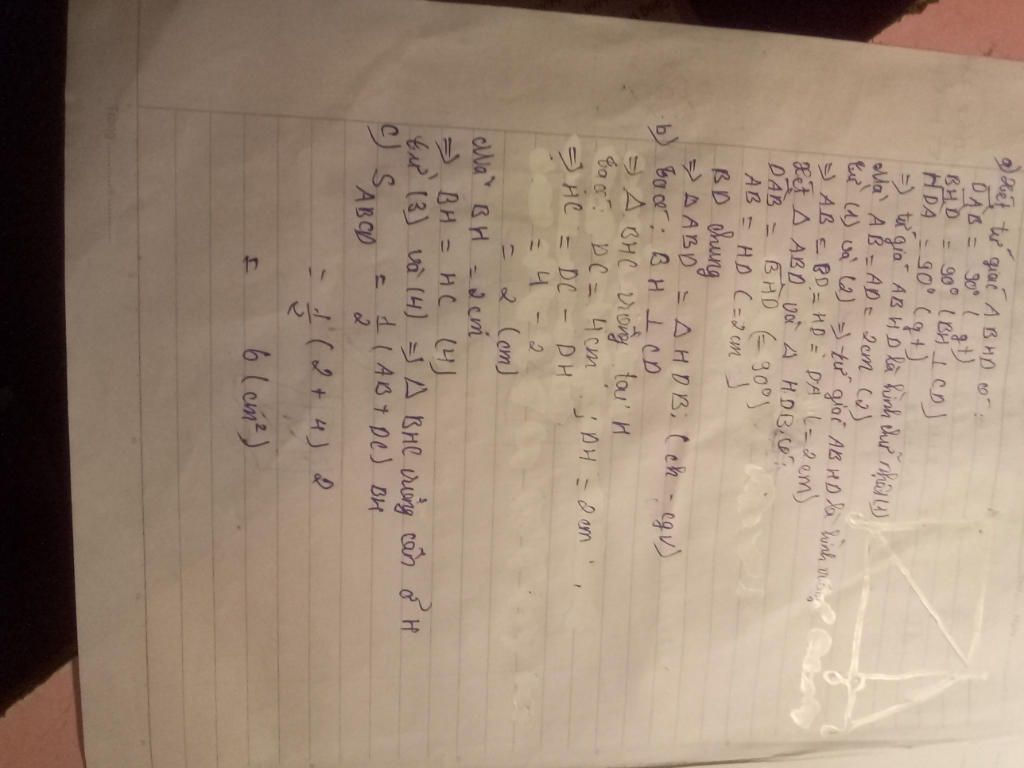 a) Xét tứ giác ABHD có:
DAB = 90° (gt)
BHD = 90° (BH ⊥ CD)
HDA = 90° (gt)
=) tứ giác ABHD là hình chữ nhật (1)
Mà AB = AD = 2cm (2)
từ (1) và (2) =) tứ giác ABHD là hình vuông
=) AB = BD = HD = DA (= 2cm)
Xét Δ ABD và Δ HDB có:
DAB = BHD (= 90°)
AB = HD (= 2cm)
BD chung
=) ΔABD = ΔHDB: (ch - cgv)
b) Ta có: BH ⊥ CD
=) Δ BHC vuông tại H
Ta có: DC = 4cm ; DH = 2cm
=) HC = DC - DH
= 4 - 2
= 2 (cm)
Mà BH = 2cm
=) BH = HC (4)
từ (3) và (4) =) Δ BHC vuông cân ở H
c) S ABCD = 1/2 (AB + DC) BH
= 1/2 (2 + 4) 2
= 6 (cm²)